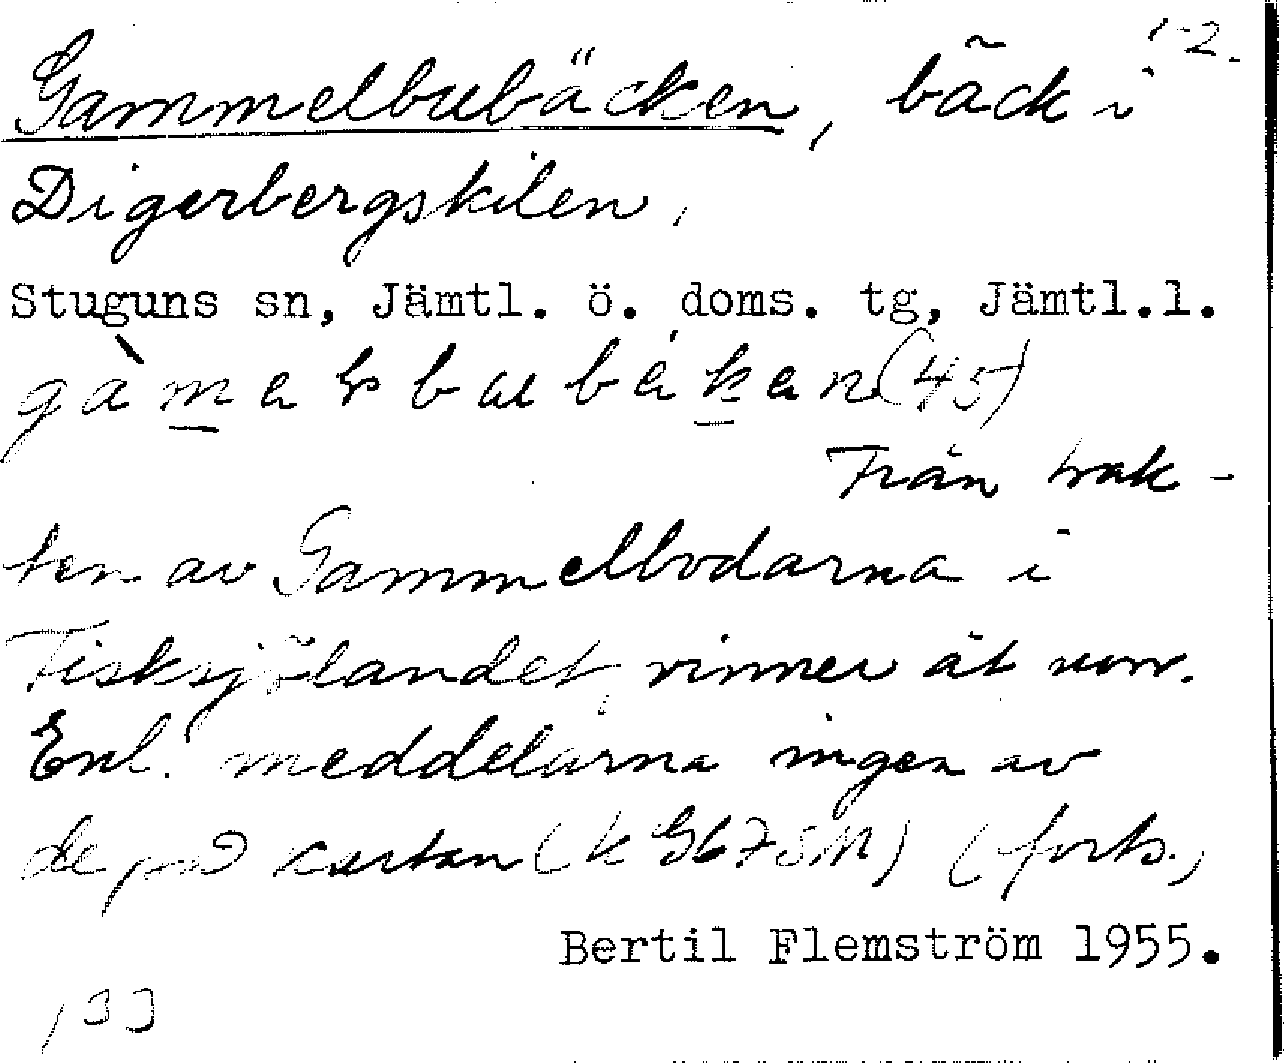 1-2.
Gammelbubäcken, bäck i
Digerbergskilen,
Stuguns sn, Jämtl. ö. doms. tg, Jämtl.l.
(45)
Från trak-
ten av Gammelbodarna i
Fisksjölandet, rinner åt norr.
Enl. meddelarna ingen av
de på kartan (k G67SM) (forts.)
Bertil Flemström 1955.